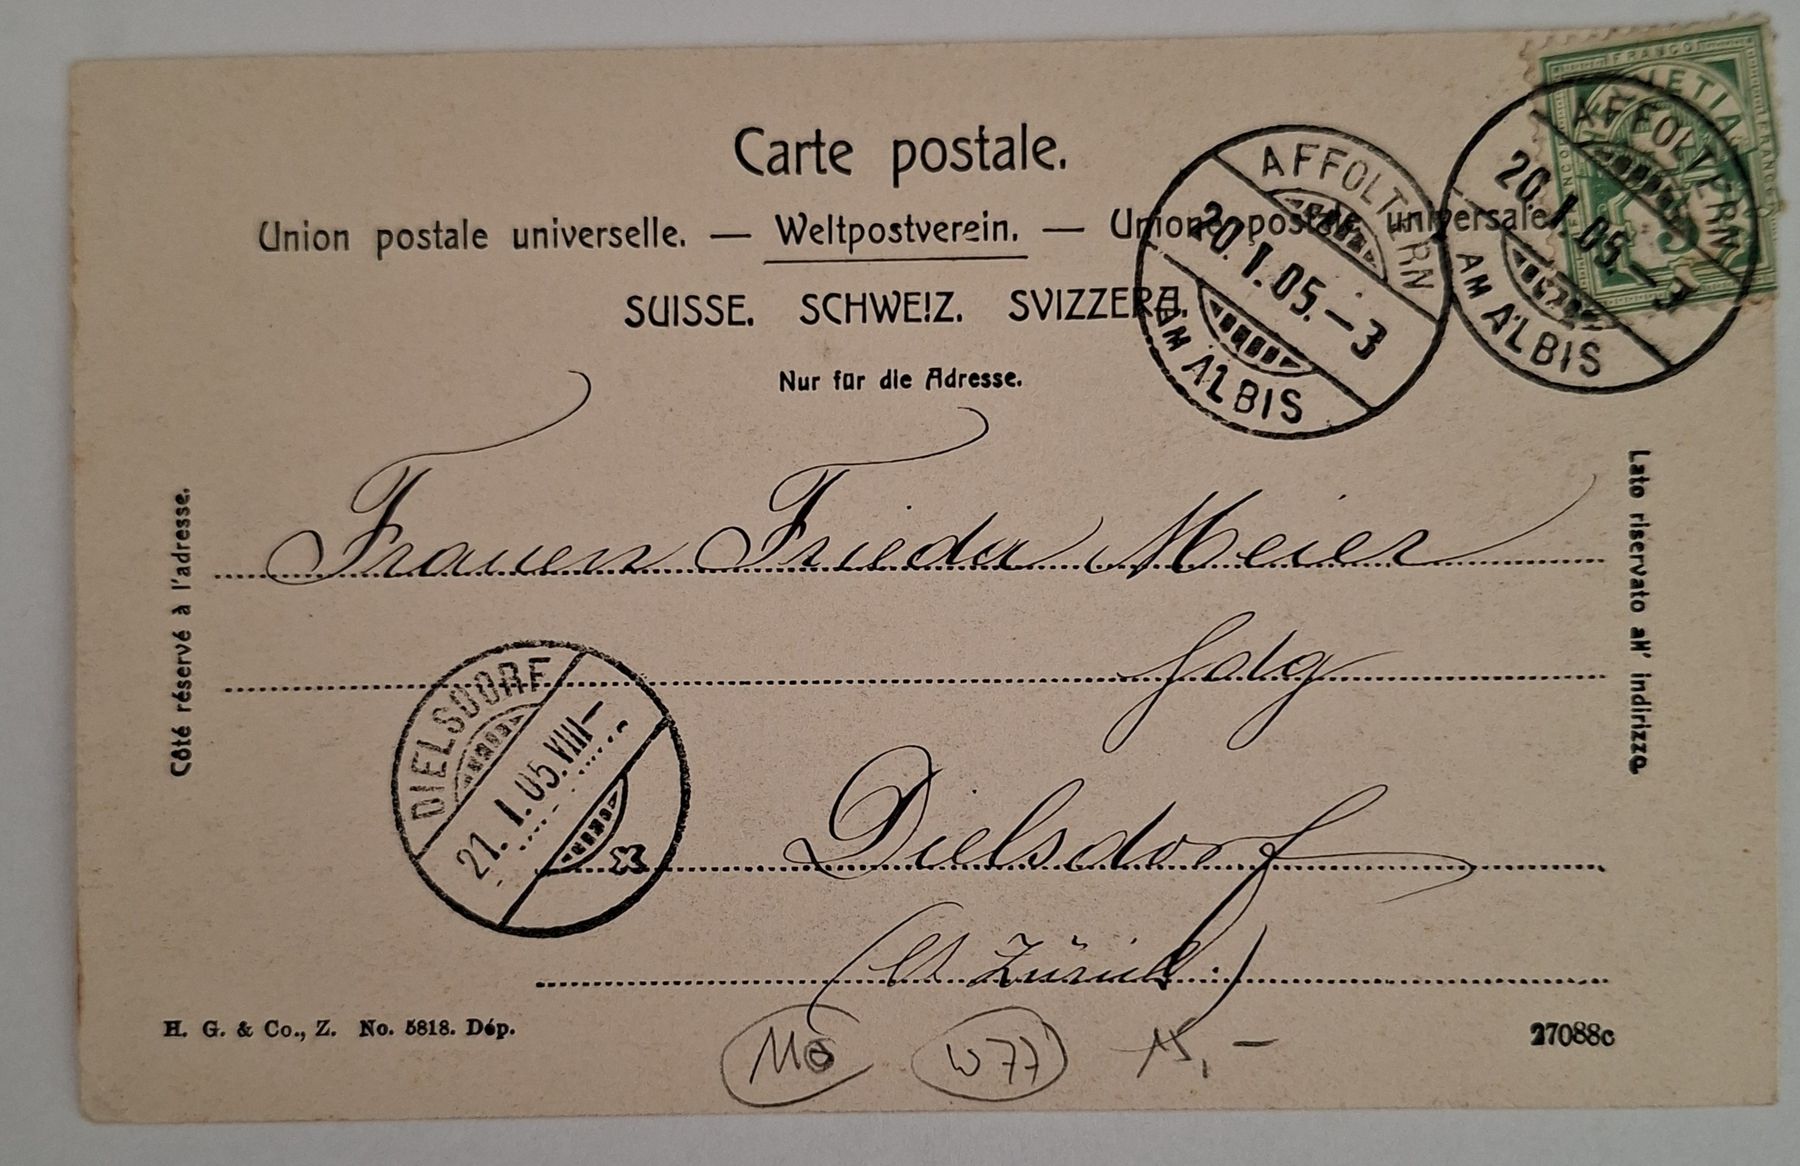 Carte postale.
Union postale universelle. — Weltpostverein. — Unione postale universale.
SUISSE. SCHWEIZ. SVIZZERA.
Nur für die Adresse.
FRANCO
HELVETIA
5
AFFOLTERN
20.I.05.–3
AM ALBIS
AFFOLTERN
20.I.05.–3
AM ALBIS
Côté réservé à l'adresse.
Lato riservato all' indirizzo.
Frauen Frieda Meier
Dielsdorf
(Ct. Zürich.)
DIELSDORF
21.I.05.VIII–
H. G. & Co., Z. No. 5818. Dép.
27088c
W77
15,–